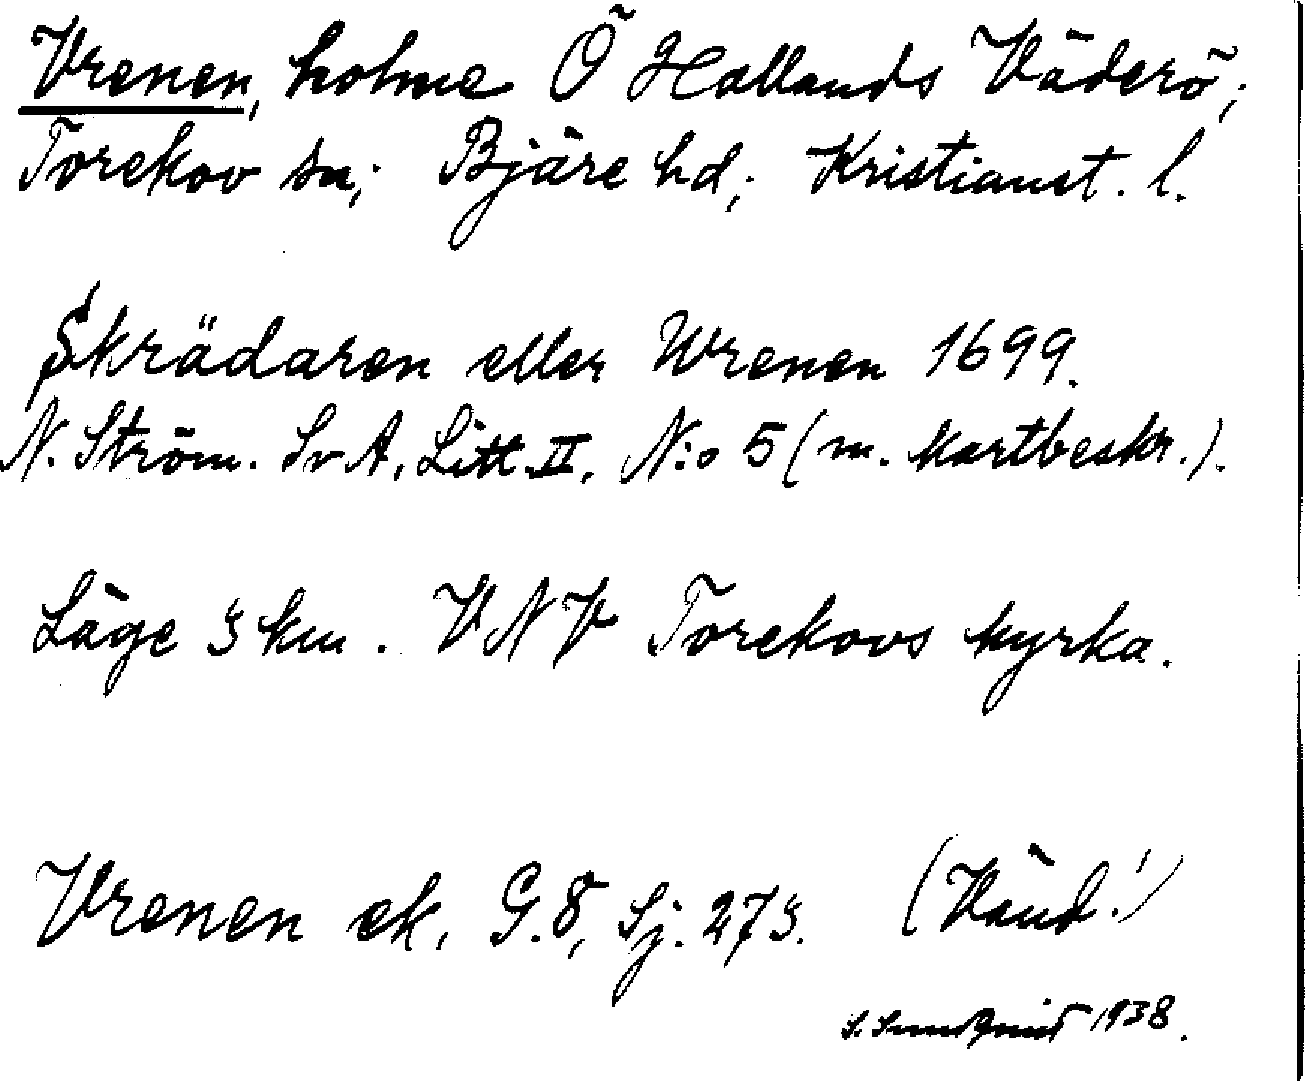 Vrenen, holme Ö Hallands Väderö;
Torekov sn; Bjäre hd; Kristianst. l.
Skrädaren eller Wrenen 1699.
N. Ström. SvA, Litt. II, N:o 5 (m. kartbeskr.).
Läge 3 km. VNV Torekovs kyrka.
Vrenen ek. G. 8, Sj. 273. (Vänd!)
S. Sundqvist 1938.